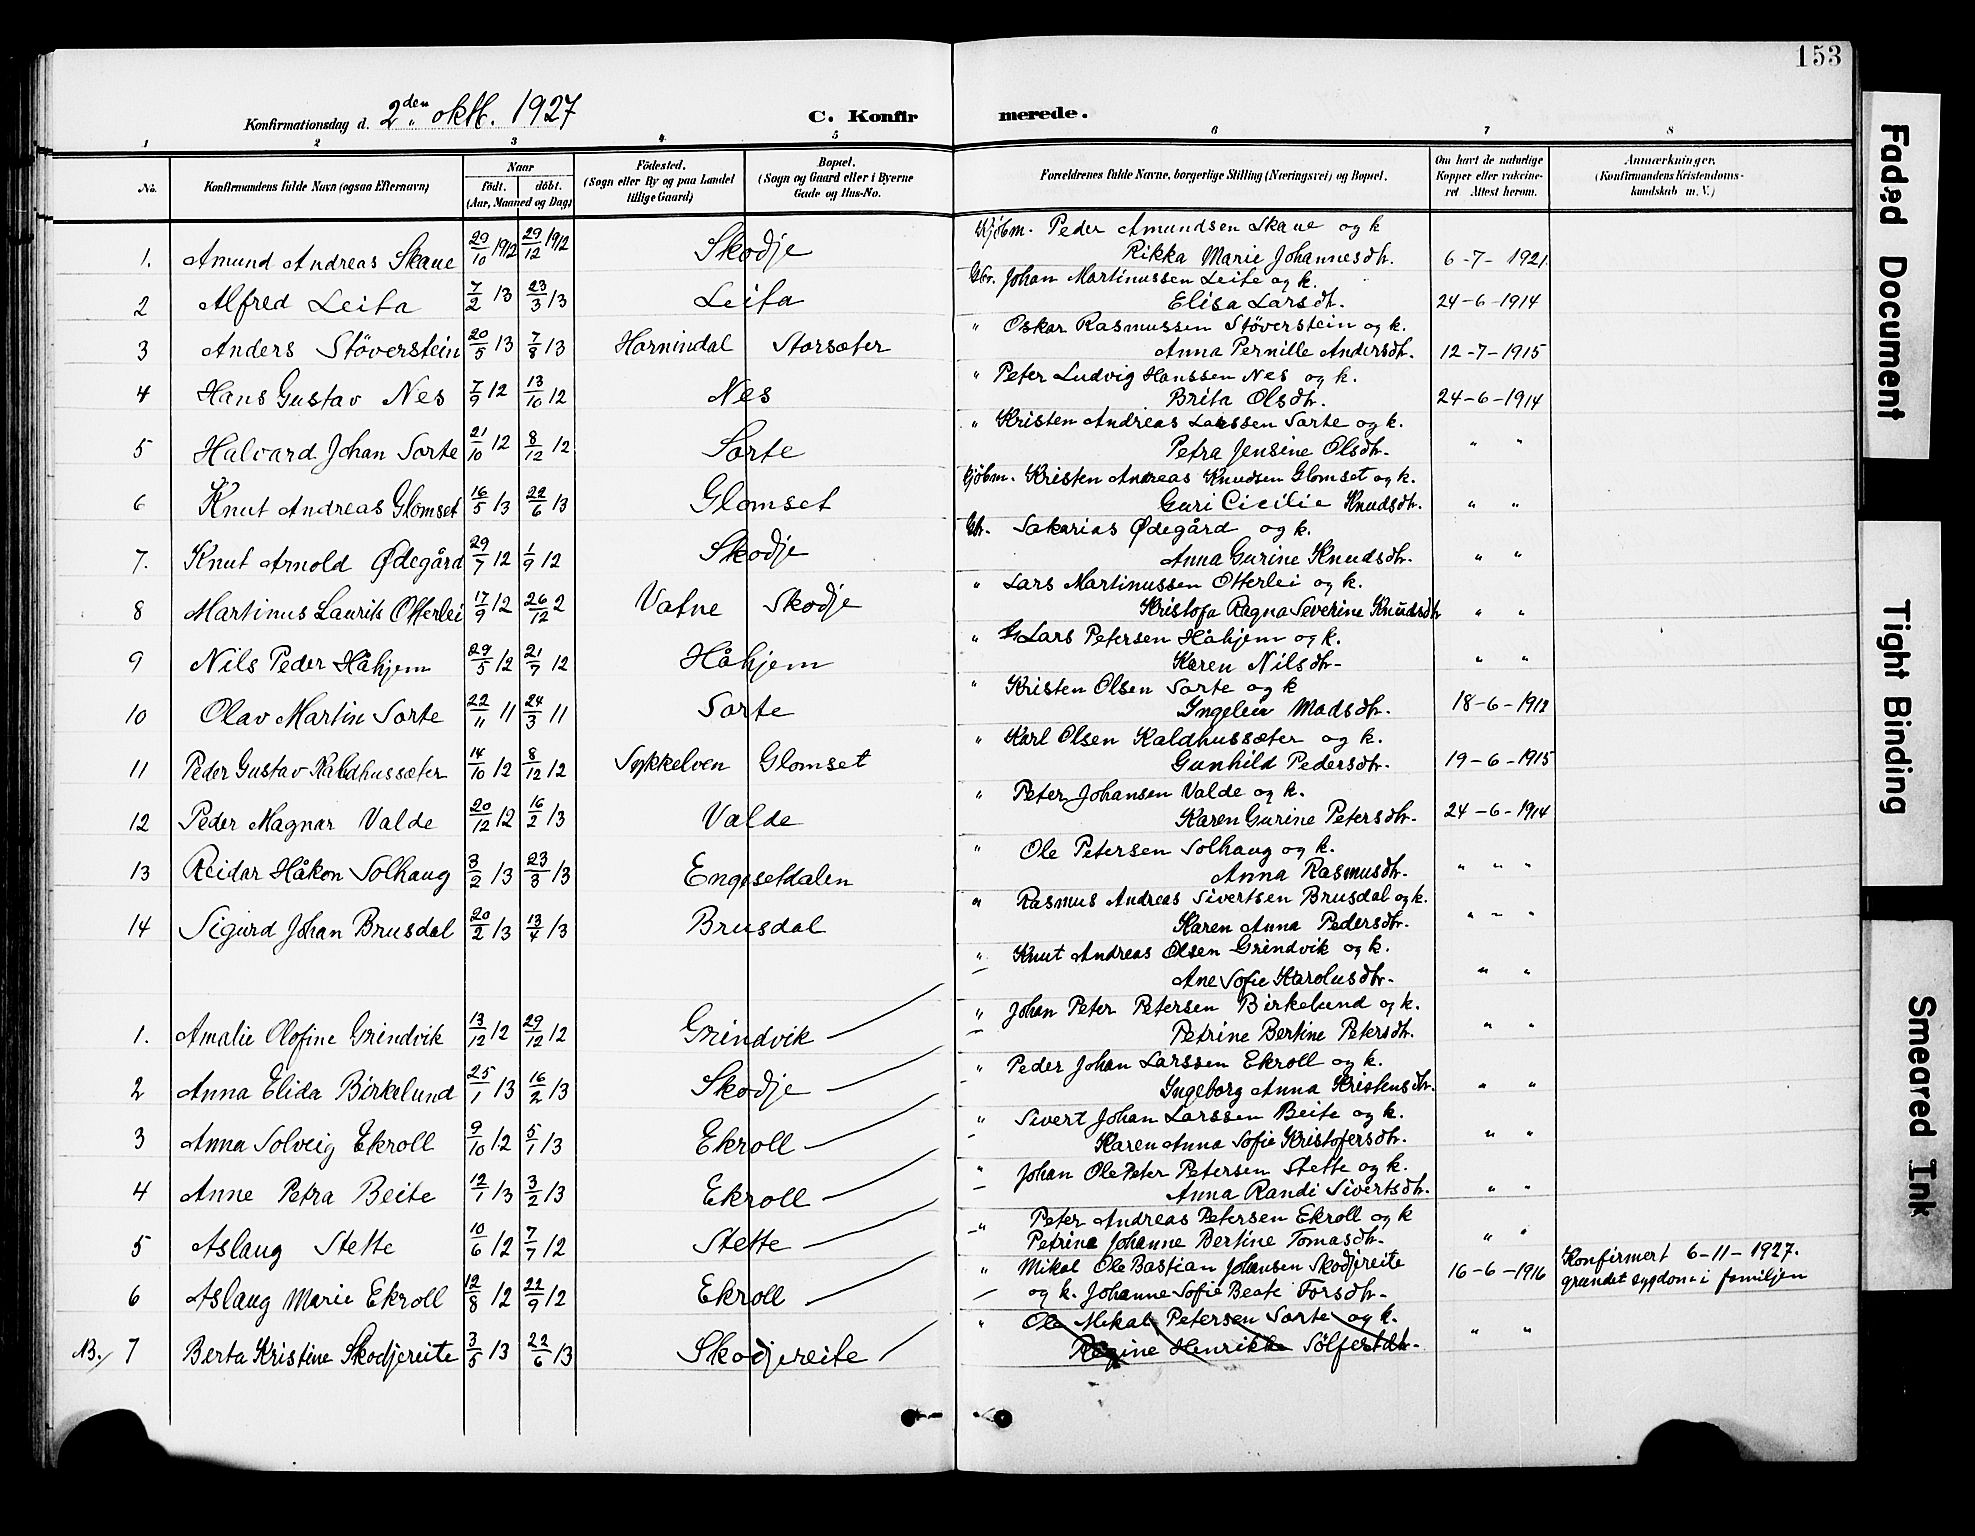 153
Konfirmationsdag d. 2den oktb. 1927
C. Konfirmerede.
1 2 3 4 5 6 7 8
No. Konfirmandens fulde Navn (ogsaa Efternavn) Naar født. døbt. (Aar, Maaned og Dag) Fødested. (Sogn eller By og paa Landet tillige Gaard) Bopæl. (Sogn og Gaard eller i Byerne Gade og Hus-No. Forældrenes fulde Navne, borgerlige Stilling (Næringsvei) og Bopæl. Om havt de naturlige Kopper eller vakcineret Attest herom. Anmærkninger. (Konfirmandens Kristendomskundskab m. V.)
1. Amund Andreas Skaue 29/10 1912 29/12 1912 Skodje Kjøbm. Peder Amundsen Skaue og k
Rikka Marie Johannesdtr. 6-7-1921
2 Alfred Leita 7/2 13 23/3 13 Leita Gbr. Johan Martinussen Leite og k.
Elisa Larsdtr. 24-6-1914
3 Anders Støverstein 20/5 13 7/8 13 Hornindal Storsæter " Oskar Rasmussen Støverstein og k.
Anna Pernille Andersdtr. 12-7-1915
4 Hans Gustav Nes 7/9 12 13/10 12 Nes " Peter Ludvig Hanssen Nes og k.
Brita Olsdtr. 24-6-1914
5 Halvard Johan Sorte 21/10 12 8/12 12 Sorte " Kristen Andreas Larssen Sorte og k.
Petra Jensine Olsdtr. " "
6 Knut Andreas Glomset 16/5 13 22/6 13 Glomset Kjøbm. Kristen Andreas Knudsen Glomset og k.
Guri Cicilie Knudsdtr. " "
7. Knut Arnold Ødegård 29/7 12 1/9 12 Skodje Gbr. Sakarias Ødegård og k.
Anna Gurine Knudsdtr. " "
8 Martinus Laurits Otterlei 17/9 12 26/12 2 Vatne Skodje " Lars Martinussen Otterlei og k.
Kristofa Ragna Severine Knudsdtr " "
9 Nils Peder Håhjem 29/5 12 21/7 12 Håhjem " Lars Petersen Håhjem og k.
Karen Nilsdtr. " "
10 Olav Martin Sorte 22/11 11 24/3 11 Sorte " Kristen Olsen Sorte og k
Ingeleiv Madsdtr. 18-6-1912
11 Peder Gustav Kaldhussæter 14/10 12 8/12 12 Sykkelven Glomset " Karl Olsen Kaldhussæter og k.
Gunhild Pedersdtr. 19-6-1915
12 Peder Magnar Valde 20/12 12 16/2 13 Valde " Peter Johansen Valde og k.
Karen Gurine Petersdtr. 24-6-1914
13 Reidar Håkon Solhaug 3/2 13 23/3 13 Engesetdalen " Ole Petersen Solhaug og k.
Anna Rasmusdtr. " " "
14 Sigurd Johan Brusdal 20/2 13 13/4 13 Brusdal " Rasmus Andreas Sivertsen Brusdal og k.
Karen Anna Pedersdtr. " " "
" Knut Andreas Olsen Grindvik og k.
Ane Sofie Karolusdtr. " "
1. Amalie Olofine Grindvik 13/12 12 29/12 12 Grindvik " Johan Peter Petersen Birkelund og k.
Petrine Bertine Petersdtr. " "
2 Anna Elida Birkelund 25/1 13 16/2 13 Skodje " Peder Johan Larssen Ekroll og k.
Ingeborg Anna Kristensdtr. " "
3 Anna Solveig Ekroll 9/10 12 5/1 13 Ekroll " Sivert Johan Larssen Beite og k.
Karen Anna Sofie Kristofersdtr. " "
4 Anne Petra Beite 12/1 13 3/2 13 Ekroll " Johan Ole Peter Petersen Stette og k.
Anna Randi Sivertsdtr. " "
5 Aslaug Stette 10/6 12 7/7 12 Stette " Peter Andreas Petersen Ekroll og k
Petrina Johanne Bertine Tomasdtr. " "
6 Aslaug Marie Ekroll 12/8 12 22/9 12 Ekroll " Mikal Ole Bastian Johansen Skodjereite
og k. Johanne Sofie Beate Forsdtr. 16-6-1916 Konfirmert 6-11-1927.
grundet sygdom i familjen
NB. 7 Berta Kristine Skodjereite 3/5 13 22/6 13 Skodjereite " Ole Mikal Petersen Sorte og k.
Regine Henrikke Sølfestdtr. " "
Faded Document
Tight Binding
Smeared Ink